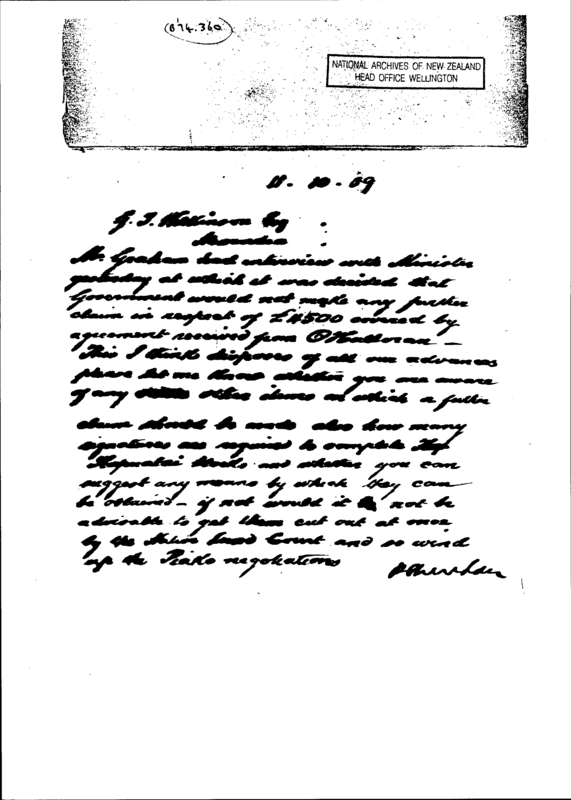 (B 74.360)
NATIONAL ARCHIVES OF NEW ZEALAND
HEAD OFFICE WELLINGTON
11 - 10 - 89
G. T. Wilkinson Esq
Mr. Graham had interview with Minister
yesterday at which it was decided that
Government would not make any further
claim in respect of £4500 covered by
agreement received from O'Halloran —
This I think disposes of all our advances
please let me know whether you are aware
of any other items on which a further
claim should be made also how many
signatures are required to complete the
Hapuatai blocks and whether you can
suggest any means by which they can
be obtained - if not would it not be
advisable to get them cut out at once
by the Native Land Court and so wind
up the Piako negotiations